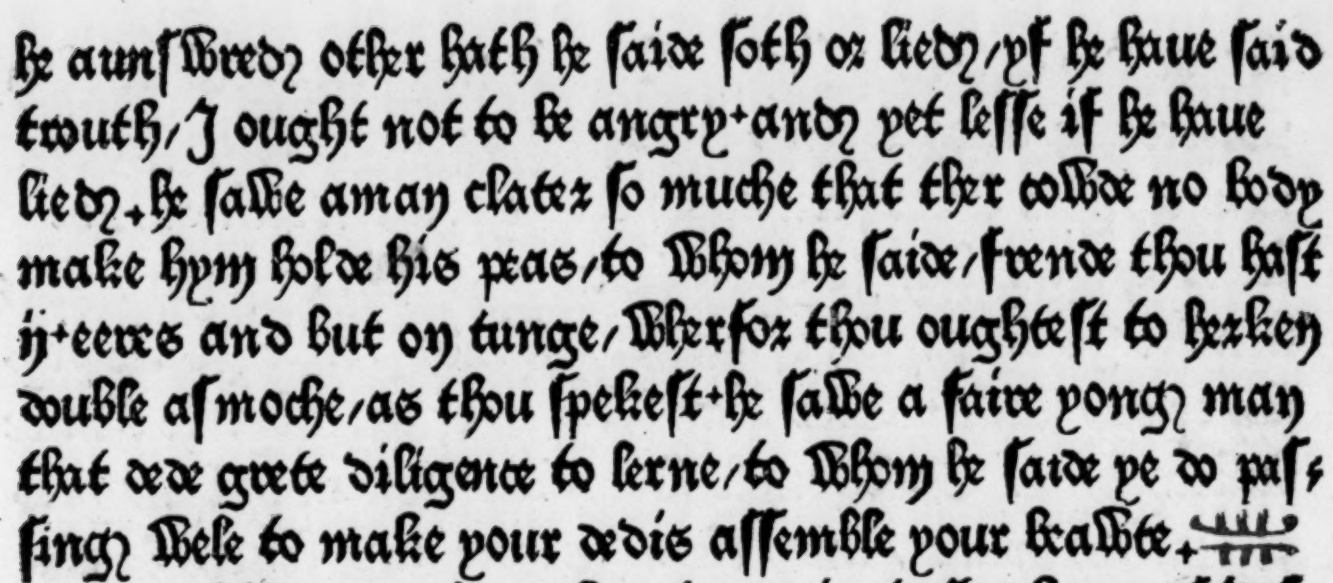 he aunſwred other hath he ſaide ſoth or lied/yf he haue ſaid
trouth/J ought not to be angry·and yet leſſe if he haue
lied.he ſawe aman clater ſo muche that ther cowde no body
make hym holde his peas/to whom he ſaide/frende thou haſt
ij·eeres and but on tunge/wherfor thou oughteſt to herken
double aſmoche/as thou ſpekeſt·he ſawe a faire yong man
that dede grete diligence to lerne/to whom he ſaide ye do paſ⸗
ſing wele to make your dedis aſſemble your beawte.